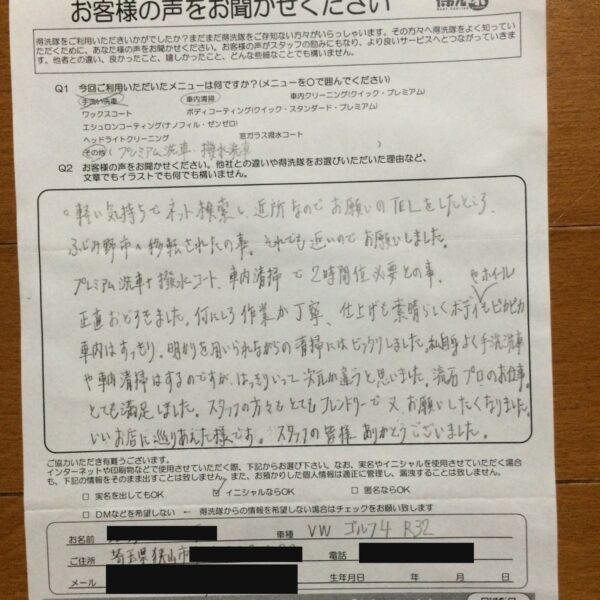 お客様の声をお聞かせください
得洗隊をご利用いただきいかがでしたか?まだまだ得洗隊をご存知ない方々がいらっしゃいます。その方々へ得洗隊をよく知ってい
ただくために、あなた様の声をお聞かせください。お客様の声がスタッフの励みにもなり、より良いサービスへとつながっていきま
す。他者との違い、良かったこと、嬉しかったこと、どんな些細なことでも構いません。
Q1 今回ご利用いただいたメニューは何ですか?(メニューを○で囲んでください)
手洗い洗車 車内清掃 車内クリーニング(クイック・プレミアム)
ワックスコート ボディコーティング(クイック・スタンダード・プレミアム)
エシュロンコーティング(ナノフィル・ゼンゼロ)
ヘッドライトクリーニング 窓ガラス撥水コート
その他(プレミアム洗車 撥水洗車)
Q2 お客様の声をお聞かせください。他社との違いや得洗隊をお選びいただいた理由など、
文章でもイラストでも何でも構いません。
軽い気持ちでネット検索し、近所なので お願いのTELをしたところ、
ふじみ野市へ移転されたの事。それでも近いので お願いしました。
プレミアム洗車+撥水コート、車内清掃で2時間位必要との事、
正直おどろきました。何にしろ作業が丁寧、仕上げも素晴らしくボディやホイールもピカピカ
車内はすっきり。明かりを用いられながらの清掃にはビックリしました。私自身よく手洗洗車
や車内清掃はするのですが、はっきりいって次元が違うと思いました。流石プロのお仕事。
とても満足しました。スタッフの方々もとてもフレンドリーで又、お願いしたくなりました。
いいお店に巡りあえた様です。スタッフの皆様ありがとうございました。
ご協力いただき有難うございます。
インターネットや印刷物などで使用させていただく際、下記からお選び下さい。なお、実名やイニシャルを使用させていただく場合
も、下記の情報をそのまま出すことは致しません。また、お預かりした個人情報は適正に管理し、漏洩することは致しません。
□ 実名を出してもOK ☑ イニシャルならOK □ 匿名ならOK
□ DMなどを希望しない ← 得洗隊からの情報を希望しない場合はチェックをお願い致します
お名前 車種 VW ゴルフ4 R32
ご住所 埼玉県狭山市 電話
メール 生年月日 年 月 日